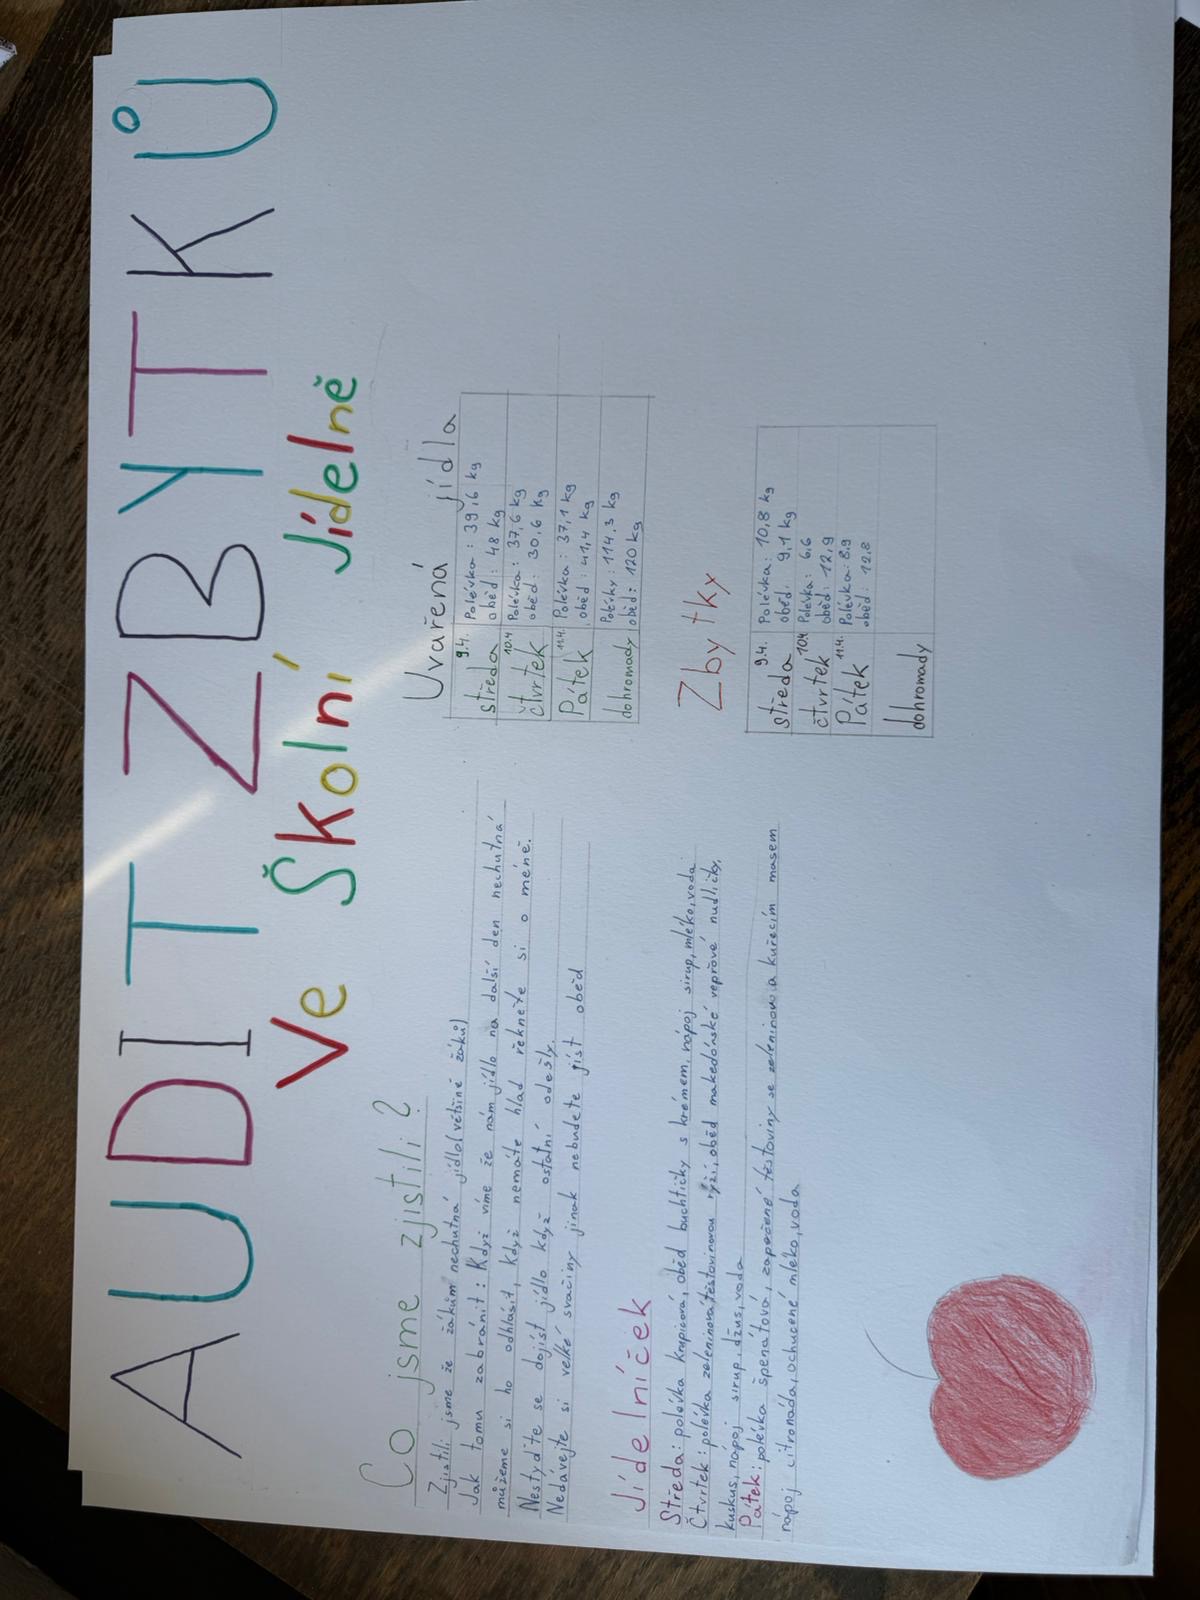 AUDIT ZBYTKŮ
Ve Školní Jídelně
Co jsme zjistili?
Zjistili jsme že žákům nechutná jídlo(většině žáků)
Jak tomu zabránit: Když víme že nám jídlo na další den nechutná
můžeme si ho odhlásit, když nemáte hlad řekněte si o méně.
Nestyďte se dojíst jídlo když ostatní odešly.
Nedávejte si velké svačiny jinak nebudete jíst oběd
Jídelníček
Středa: polévka krupicová, oběd buchtičky s krémem, nápoj sirup, mléko, voda
Čtvrtek: polévka zeleninová těstovinovou rýží, oběd makedonské vepřové nudličky,
kuskus, nápoj sirup, džus, voda
Pátek: polévka špenátová, zapečené těstoviny se zeleninou a kuřecím masem
nápoj citronáda, ochucené mléko, voda
Uvařená jídla
středa 9.4. Polévka: 39,6 kg
oběd: 48 kg
čtvrtek 10.4 Polévka: 37,6 kg
oběd: 30,6 kg
Pátek 11.4. Polévka: 37,1 kg
oběd: 41,4 kg
dohromady Polévky: 114,3 kg
oběd: 120 kg
Zbytky
středa 9.4. Polévka: 10,8 kg
oběd: 9,1 kg
čtvrtek 10.4 Polévka: 6,6
oběd: 12,9
Pátek 11.4. Polévka: 8,9
oběd: 12,8
dohromady